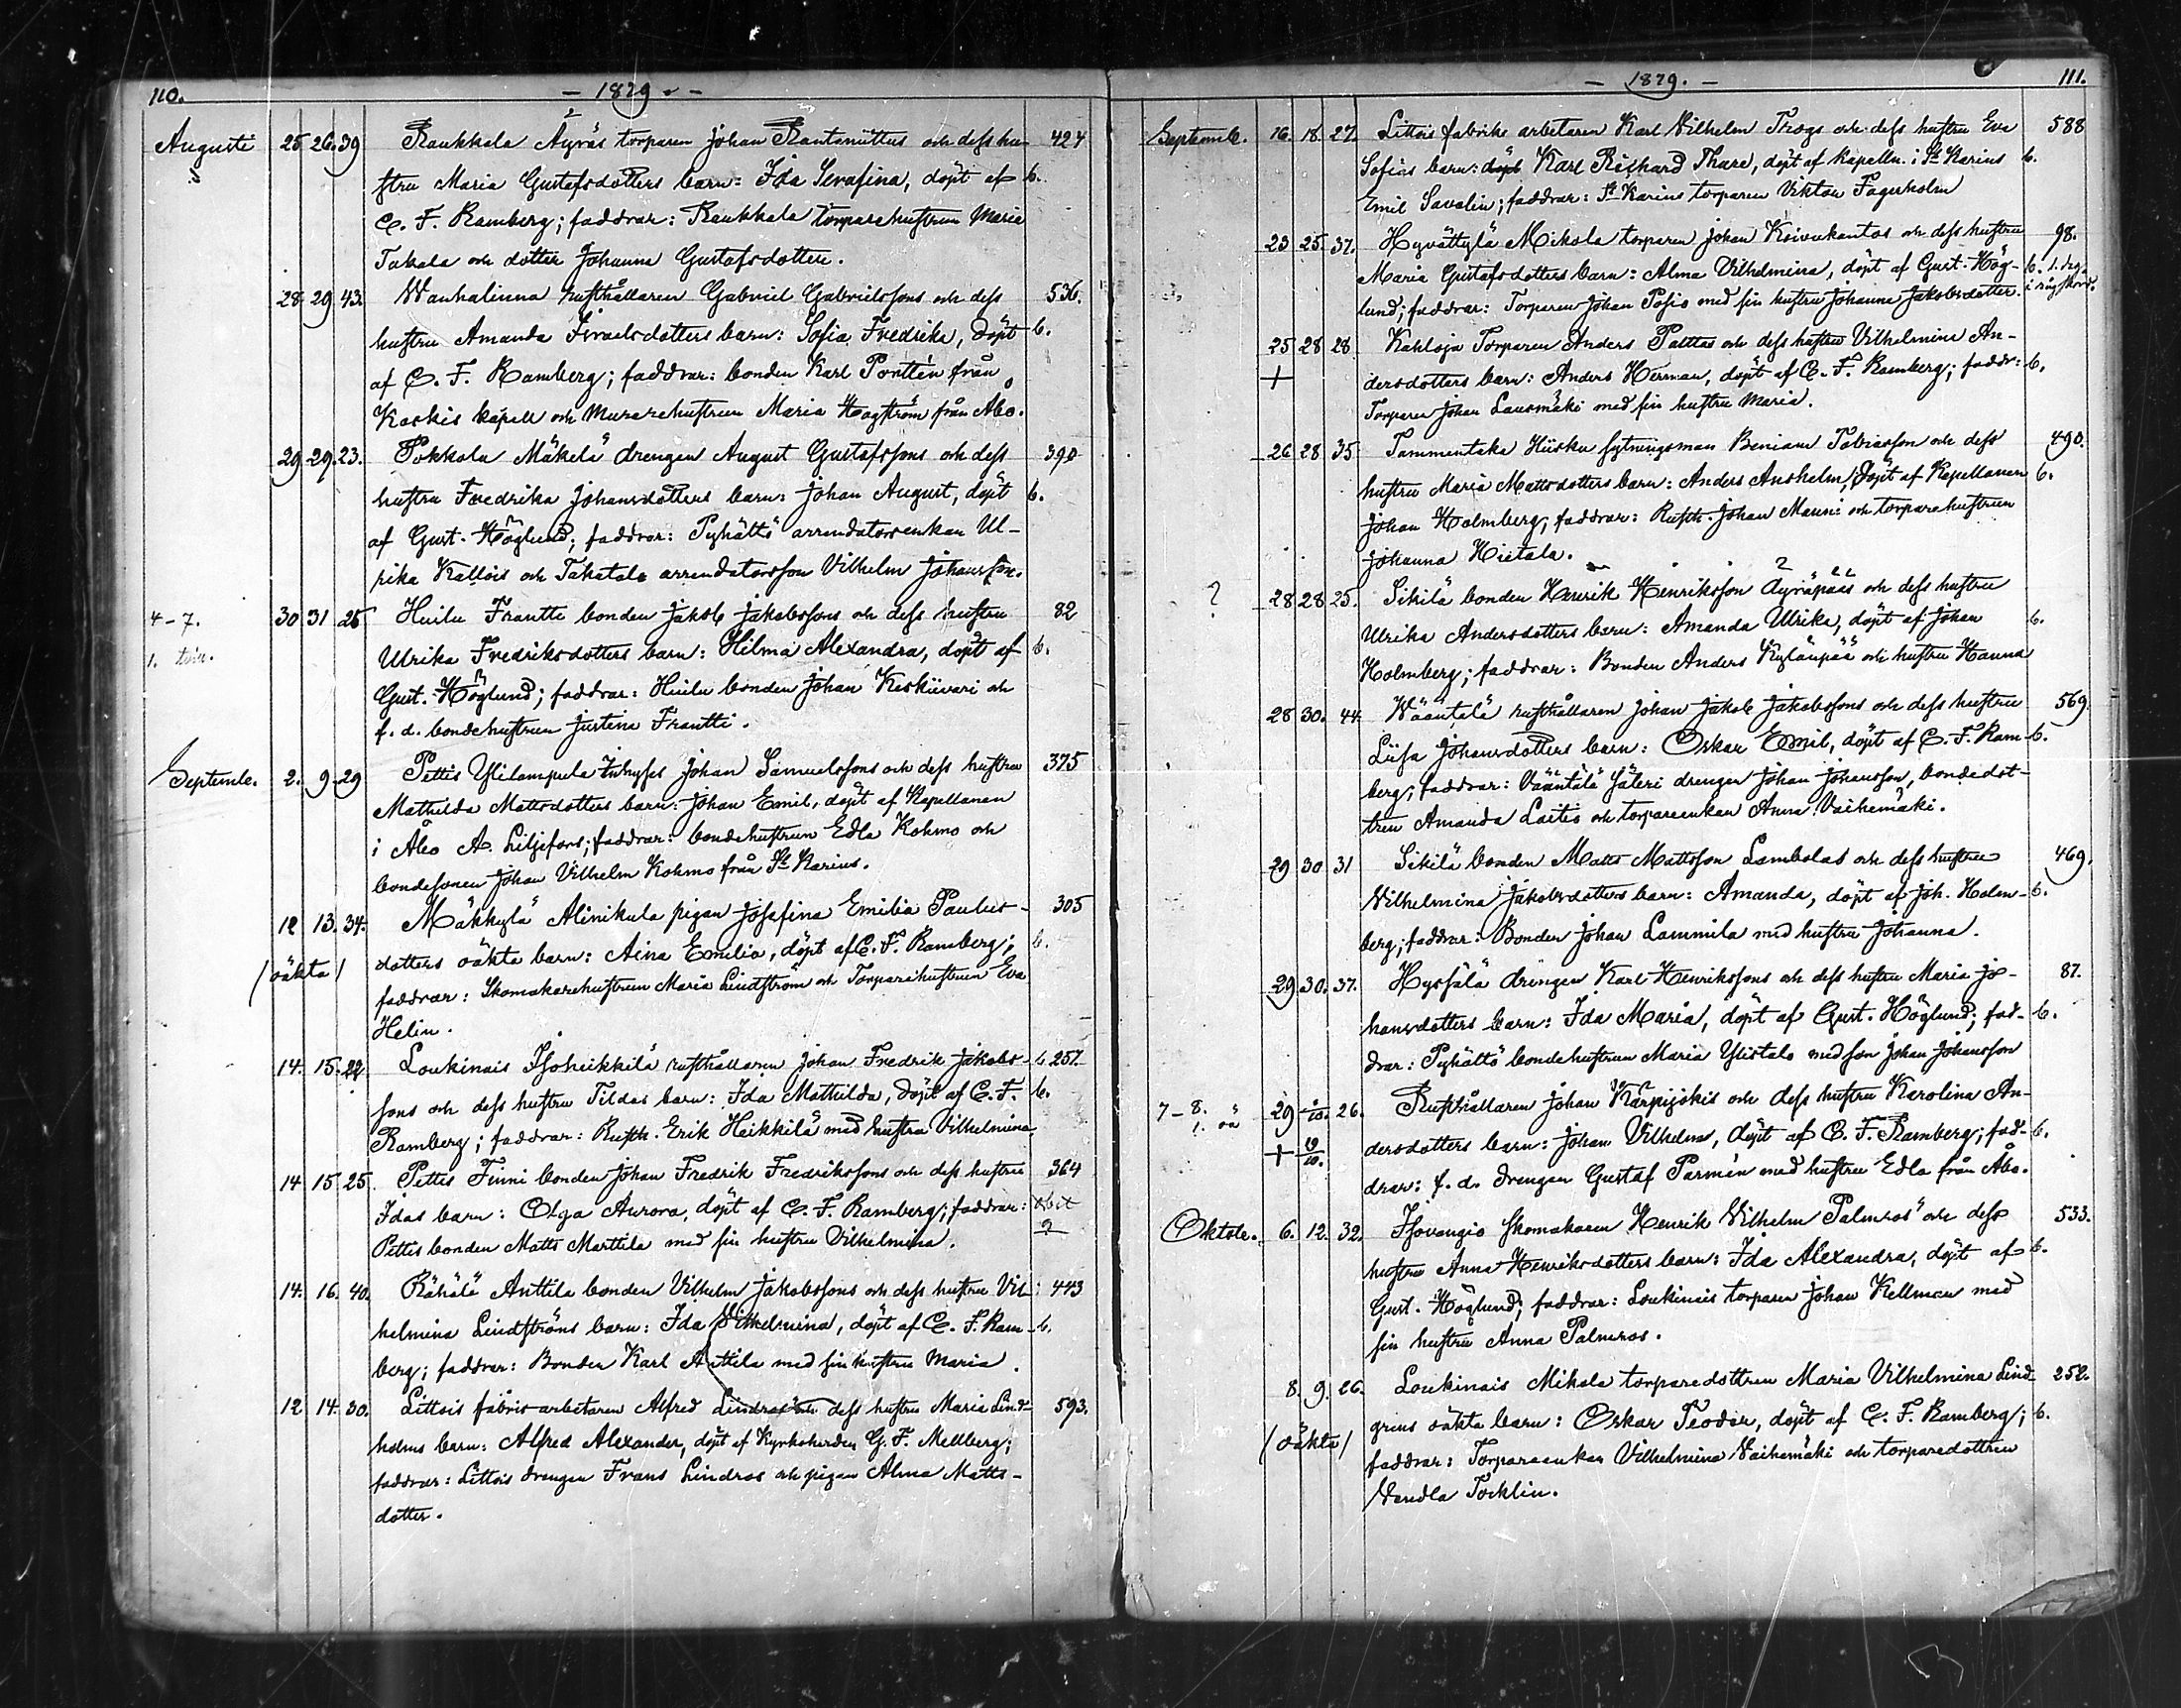 110.
- 1879 -
Augusti 25 26. 39 Raukkala Äyräs torparen Johan Rantamittus och dess hu- 424
stru Maria Gustafsdotters barn: Ida Serafina, döpt af b.
C. F. Ramberg; faddrar: Raukkala torparehustrun Maria
Takala och dotter Johanna Gustafsdotter.
28 29 43. Wanhalinna rusthållaren Gabriel Gabrielssons och dess 536.
hustru Amanda Israelsdotters barn: Sofia Fredrika, döpt b.
af C. F. Ramberg; faddrar: bonden Karl Pontten från
Kaskis kapell och Murarehustrun Maria Hagström från Åbo.
29 29. 23. Pokkola Mäkelä drengen August Gustafssons och dess 390
hustru Fredrika Johansdotters barn: Johan August, döpt b.
af Gust. Höglund; faddrar: Pyhältö arrendatorsenkan Ul-
rika Kallois och Takatalo arrendatorsson Vilhelm Johansson.
4-7. 30 31 25 Huilu Frantti bonden Jakob Jakobssons och dess hustru 82
1. Ulrika Fredriksdotters barn: Hilma Alexandra, döpt af b.
Gust. Höglund; faddrar: Huilu bonden Johan Keskiivari och
f. d. bondehustrun Justina Frantti.
Septemb. 2. 9. 29 Pettis Ylilampula inhyses Johan Samuelssons och dess hustru 375
Mathilda Mattsdotters barn: Johan Emil, döpt af Kapellanen
i Åbo A. Liljefors; faddrar: bondehustrun Edla Kohmo och
bondesonen Johan Vilhelm Kohmo från St Karins.
12 13. 34. Mäkkylä Alinikula pigan Josefina Emilia Paulus- 305
(oäkta) dotters oäkta barn: Aina Emilia, döpt af C. F. Ramberg; b.
faddrar: Skomakarehustrun Maria Lindström och Torparehustrun Eva
Helin.
14. 15. 22. Loukinais Isoheikkilä rusthållaren Johan Fredrik Jakobs- b 257.
sons och dess hustru Tildas barn: Ida Mathilda, döpt af C. F. b.
Ramberg; faddrar: Rusth. Erik Heikkilä med hustru Vilhelmina.
14 15 25. Pettis Finni bonden Johan Fredrik Fredrikssons och dess hustru 364
Idas barn: Olga Aurora, döpt af C. F. Ramberg; faddrar:
Pettis bonden Matts Marttila med sin hustru Vilhelmina. ?
14. 16. 40. Rähälä Anttila bonden Vilhelm Jakobssons och dess hustru Vil- 443
helmina Lindströms barn: Ida Vilhelmina, döpt af C. F. Ram- b.
berg; faddrar: Bonden Karl Anttila med sin hustru Maria.
12 14. 30. Littois fabriksarbetaren Alfred Lindros och dess hustru Maria Lind- 593.
holms barn: Alfred Alexander, döpt af Kyrkoherden G. F. Mellberg;
faddrar: Littois drengen Frans Lindros och pigan Alma Matts-
dotter.
- 1879. -
111.
Septemb. 16. 18. 27. Littois fabriks arbetaren Karl Vilhelm Thogs och dess hustru Eva 588
Sofias barn: Karl Rickard Thure, döpt af Kapelln. i St Karins b.
Emil Savalin; faddrar: St Karins torparen Viktor Fagerholm
23 25. 37. Hyvättylä Mikola torparen Johan Koivukantos och dess hustru 98.
Maria Gustafsdotters barn: Alma Vilhelmina, döpt af Gust. Hög- b.
lund; faddrar: Torparen Johan Posio med sin hustru Johanna Jakobsdotter.
25 28 28 Kahloja Torparen Anders Palttas och dess hustru Vilhelmina An-
+ dersdotters barn: Anders Herman, döpt af C. F. Ramberg; faddr: b.
Torparen Johan Lausmäki med sin hustru Maria.
26 28 35 Tammentaka Hiisku sytningsman Beniam Tobiasson och dess 490.
hustru Maria Mattsdotters barn: Anders Anshelm, Döpt af Kapellanen b.
Johan Holmberg; faddrar: Rusth. Johan Mauni och torparehustrun
Johanna Hietala.
? 28 28 25. Sikilä bonden Henrik Henriksson Äyräpääs och dess hustru
Ulrika Andersdotters barn: Amanda Ulrika, döpt af Johan b.
Holmberg; faddrar: Bonden Anders Kylänpää och hustru Hanna
28 30. 44. Wääntelä rusthållaren Johan Jakob Jakobssons och dess hustru 569.
Liisa Johansdotters barn: Oskar Emil, döpt af C. F. Ram- b.
berg; faddrar: Vääntälä Säteri drengen Johan Johansson, bondedot-
tren Amanda Laitio och torpareenkan Anna Vaihemäki.
29 30 31 Sikilä bonden Matts Mattsson Lambolas och dess hustru 469.
Vilhelmina Jakobsdotters barn: Amanda, döpt af Joh. Holm- b.
berg; faddrar: Bonden Johan Lammila med hustru Johanna.
29 30. 37. Hyssälä drengen Karl Henrikssons och dess hustru Maria Jo- 87.
hansdotters barn: Ida Maria, döpt af Gust. Höglund; fad- b.
drar: Pyhältö bondehustrun Maria Ylistalo med son Johan Johansson
7-8. 29 26. Rusthållaren Johan Kärpijokis och dess hustru Karolina An-
+ dersdotters barn: Johan Vilhelm, döpt af C. F. Ramberg; fad- b.
drar: f. d. drengen Gustaf Parmén med hustru Edla från Åbo.
Oktob. 6. 12. 32. Isovangio skomakaren Henrik Vilhelm Palmros' och dess 533.
hustru Anna Henriksdotters barn: Ida Alexandra, döpt af b.
Gust. Höglund; faddrar: Loukinais torparen Johan Kellman med
sin hustru Anna Palmros.
8. 9. 26. Loukinais Mikola torparedottren Maria Vilhelmina Lind- 252.
(oäkta) grens oäkta barn: Oskar Teodor, döpt af C. F. Ramberg; b.
faddrar: Torpareenkan Vilhelmina Vaihemäki och torparedottren
Vendla Tocklin.